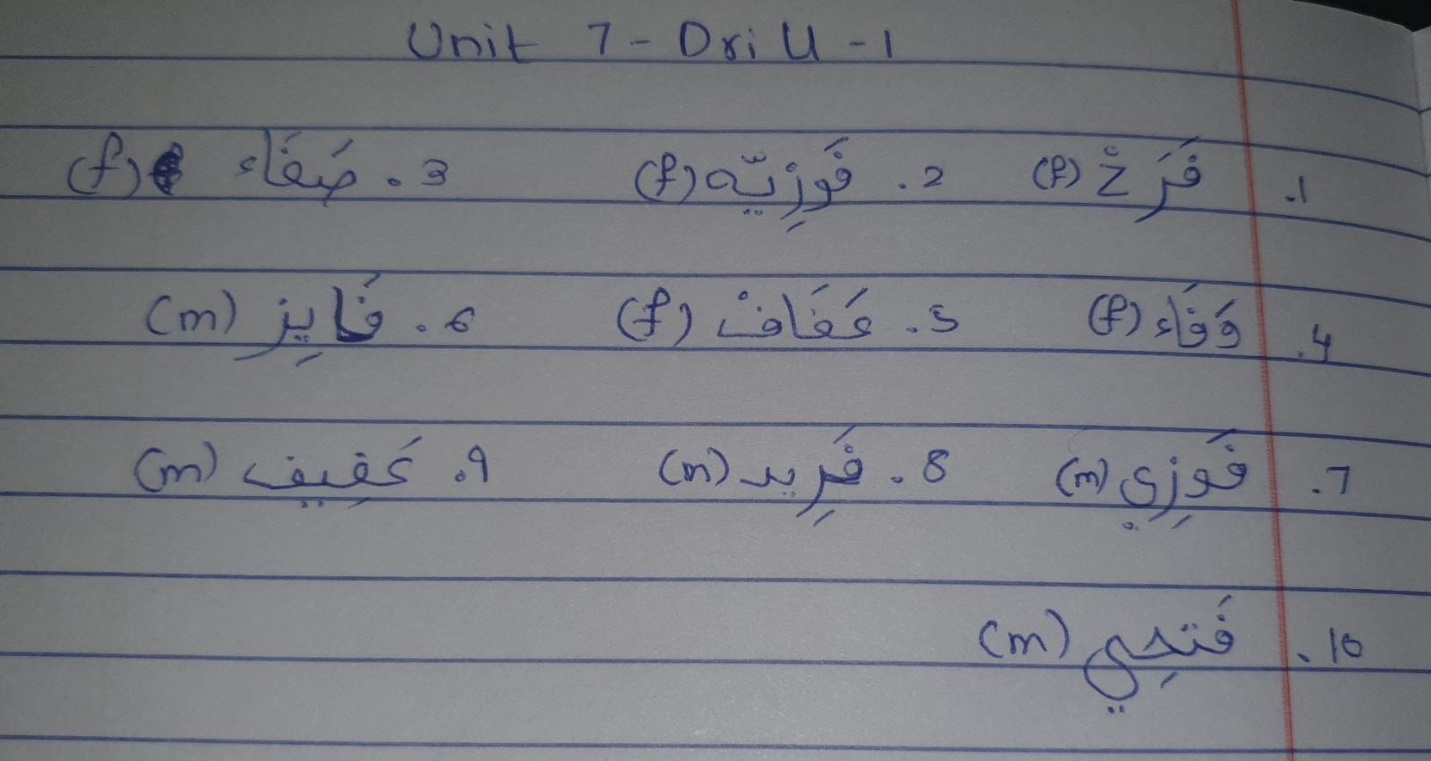 Unit 7 - Drill - 1
1. فَرَحْ (f) 2. فَوزِيّه (f) 3. صَفَاء (f)
4. وَفَاء (f) 5. عَفَافْ (f) 6. فَايِز (m)
7. فَوزِي (m) 8. فَرِيد (m) 9. عَفِيف (m)
10. فَتحِي (m)